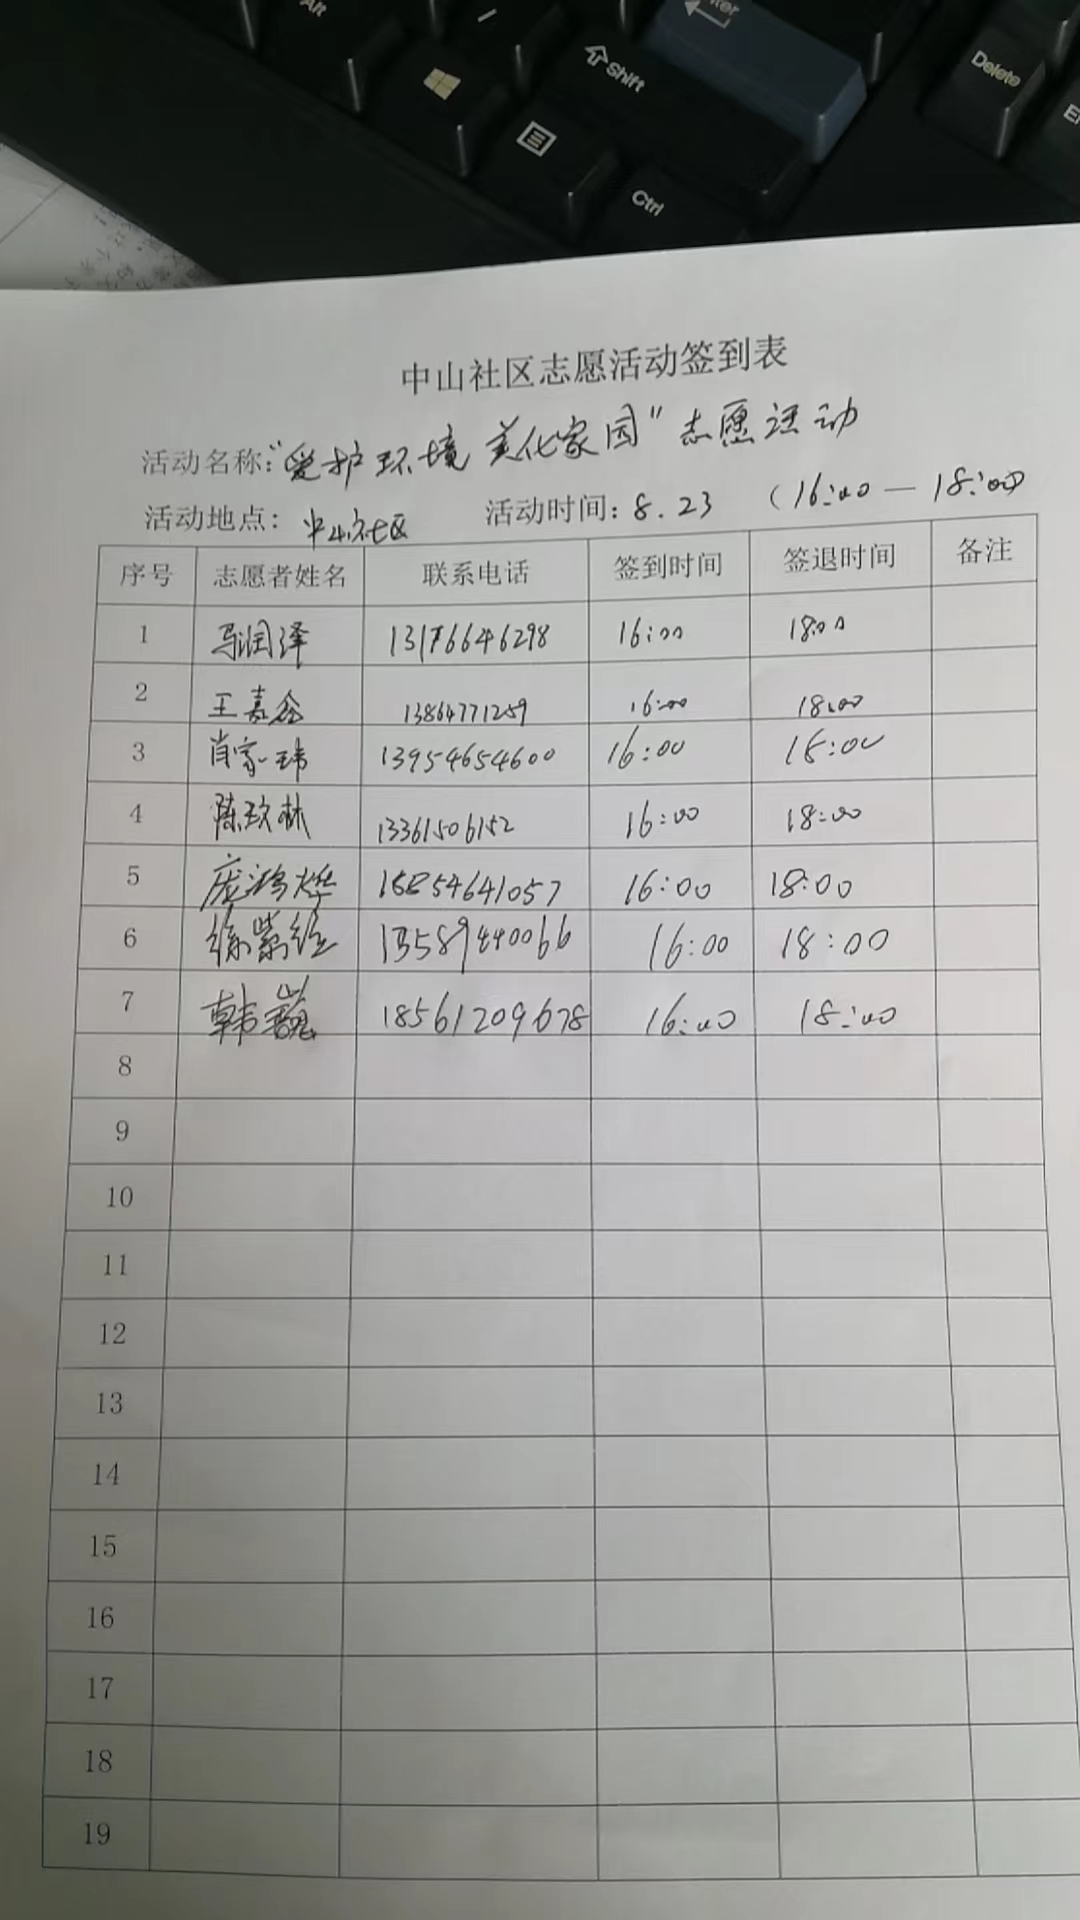 Alt
/
Enter
Shift
Delete
Ctrl
中山社区志愿活动签到表
活动名称:"爱护环境 美化家园"志愿活动
活动地点: 中山社区 活动时间: 8.23 (16:00—18:00)
序号 志愿者姓名 联系电话 签到时间 签退时间 备注
1 马润泽 13176646298 16:00 18:00
2 王嘉鑫 13864771259 16:00 18:00
3 肖家玮 13954654600 16:00 18:00
4 陈玟林 13361506152 16:00 18:00
5 庞鸿烨 15854641057 16:00 18:00
6 徐紫绘 13589440066 16:00 18:00
7 韩巍 18561209678 16:00 18:00
8
9
10
11
12
13
14
15
16
17
18
19